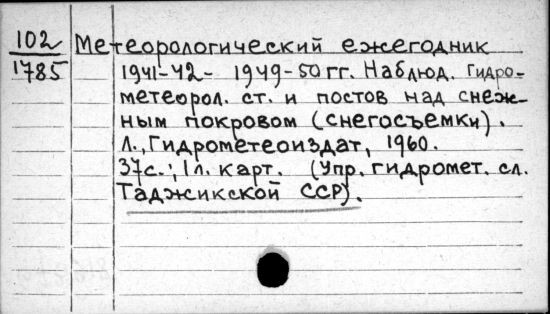 102
1785
Метеорологический ежегодник
1941-42- 1949-50 гг. Наблюд. Гидро-
метеорол. ст. и постов над снеж-
ным покровом (снегосъемки).
Л., Гидрометеоиздат, 1960.
37с.; 1 л. карт. (Упр. гидромет. сл.
Таджикской ССР).